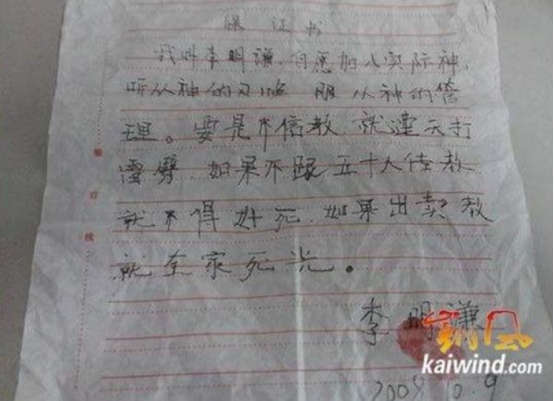 保证书
我叫李明谦,自愿加入实际神,
听从神的 服从神的管
理。要是不信教就遭天打
雷劈,如果不跟五十人传教
就不得好死,如果出卖教
就全家死光。
李明谦
2008.10.9
凯风
kaiwind.com
装
订
线